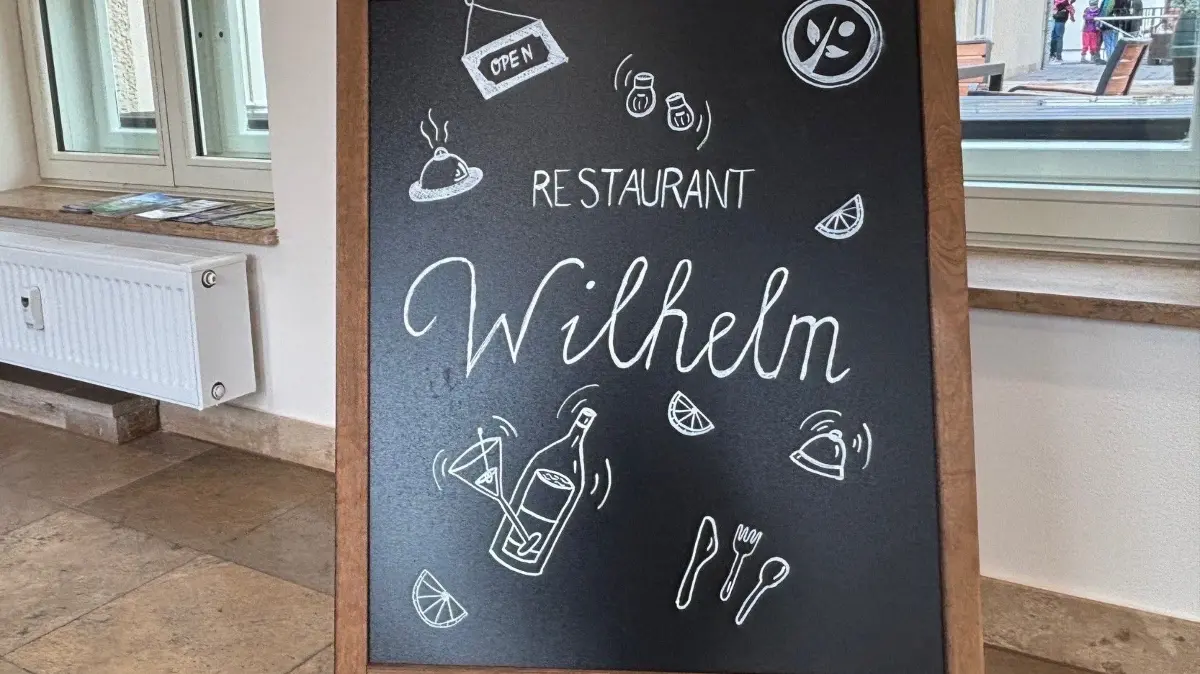 OPEN
RESTAURANT
Wilhelm